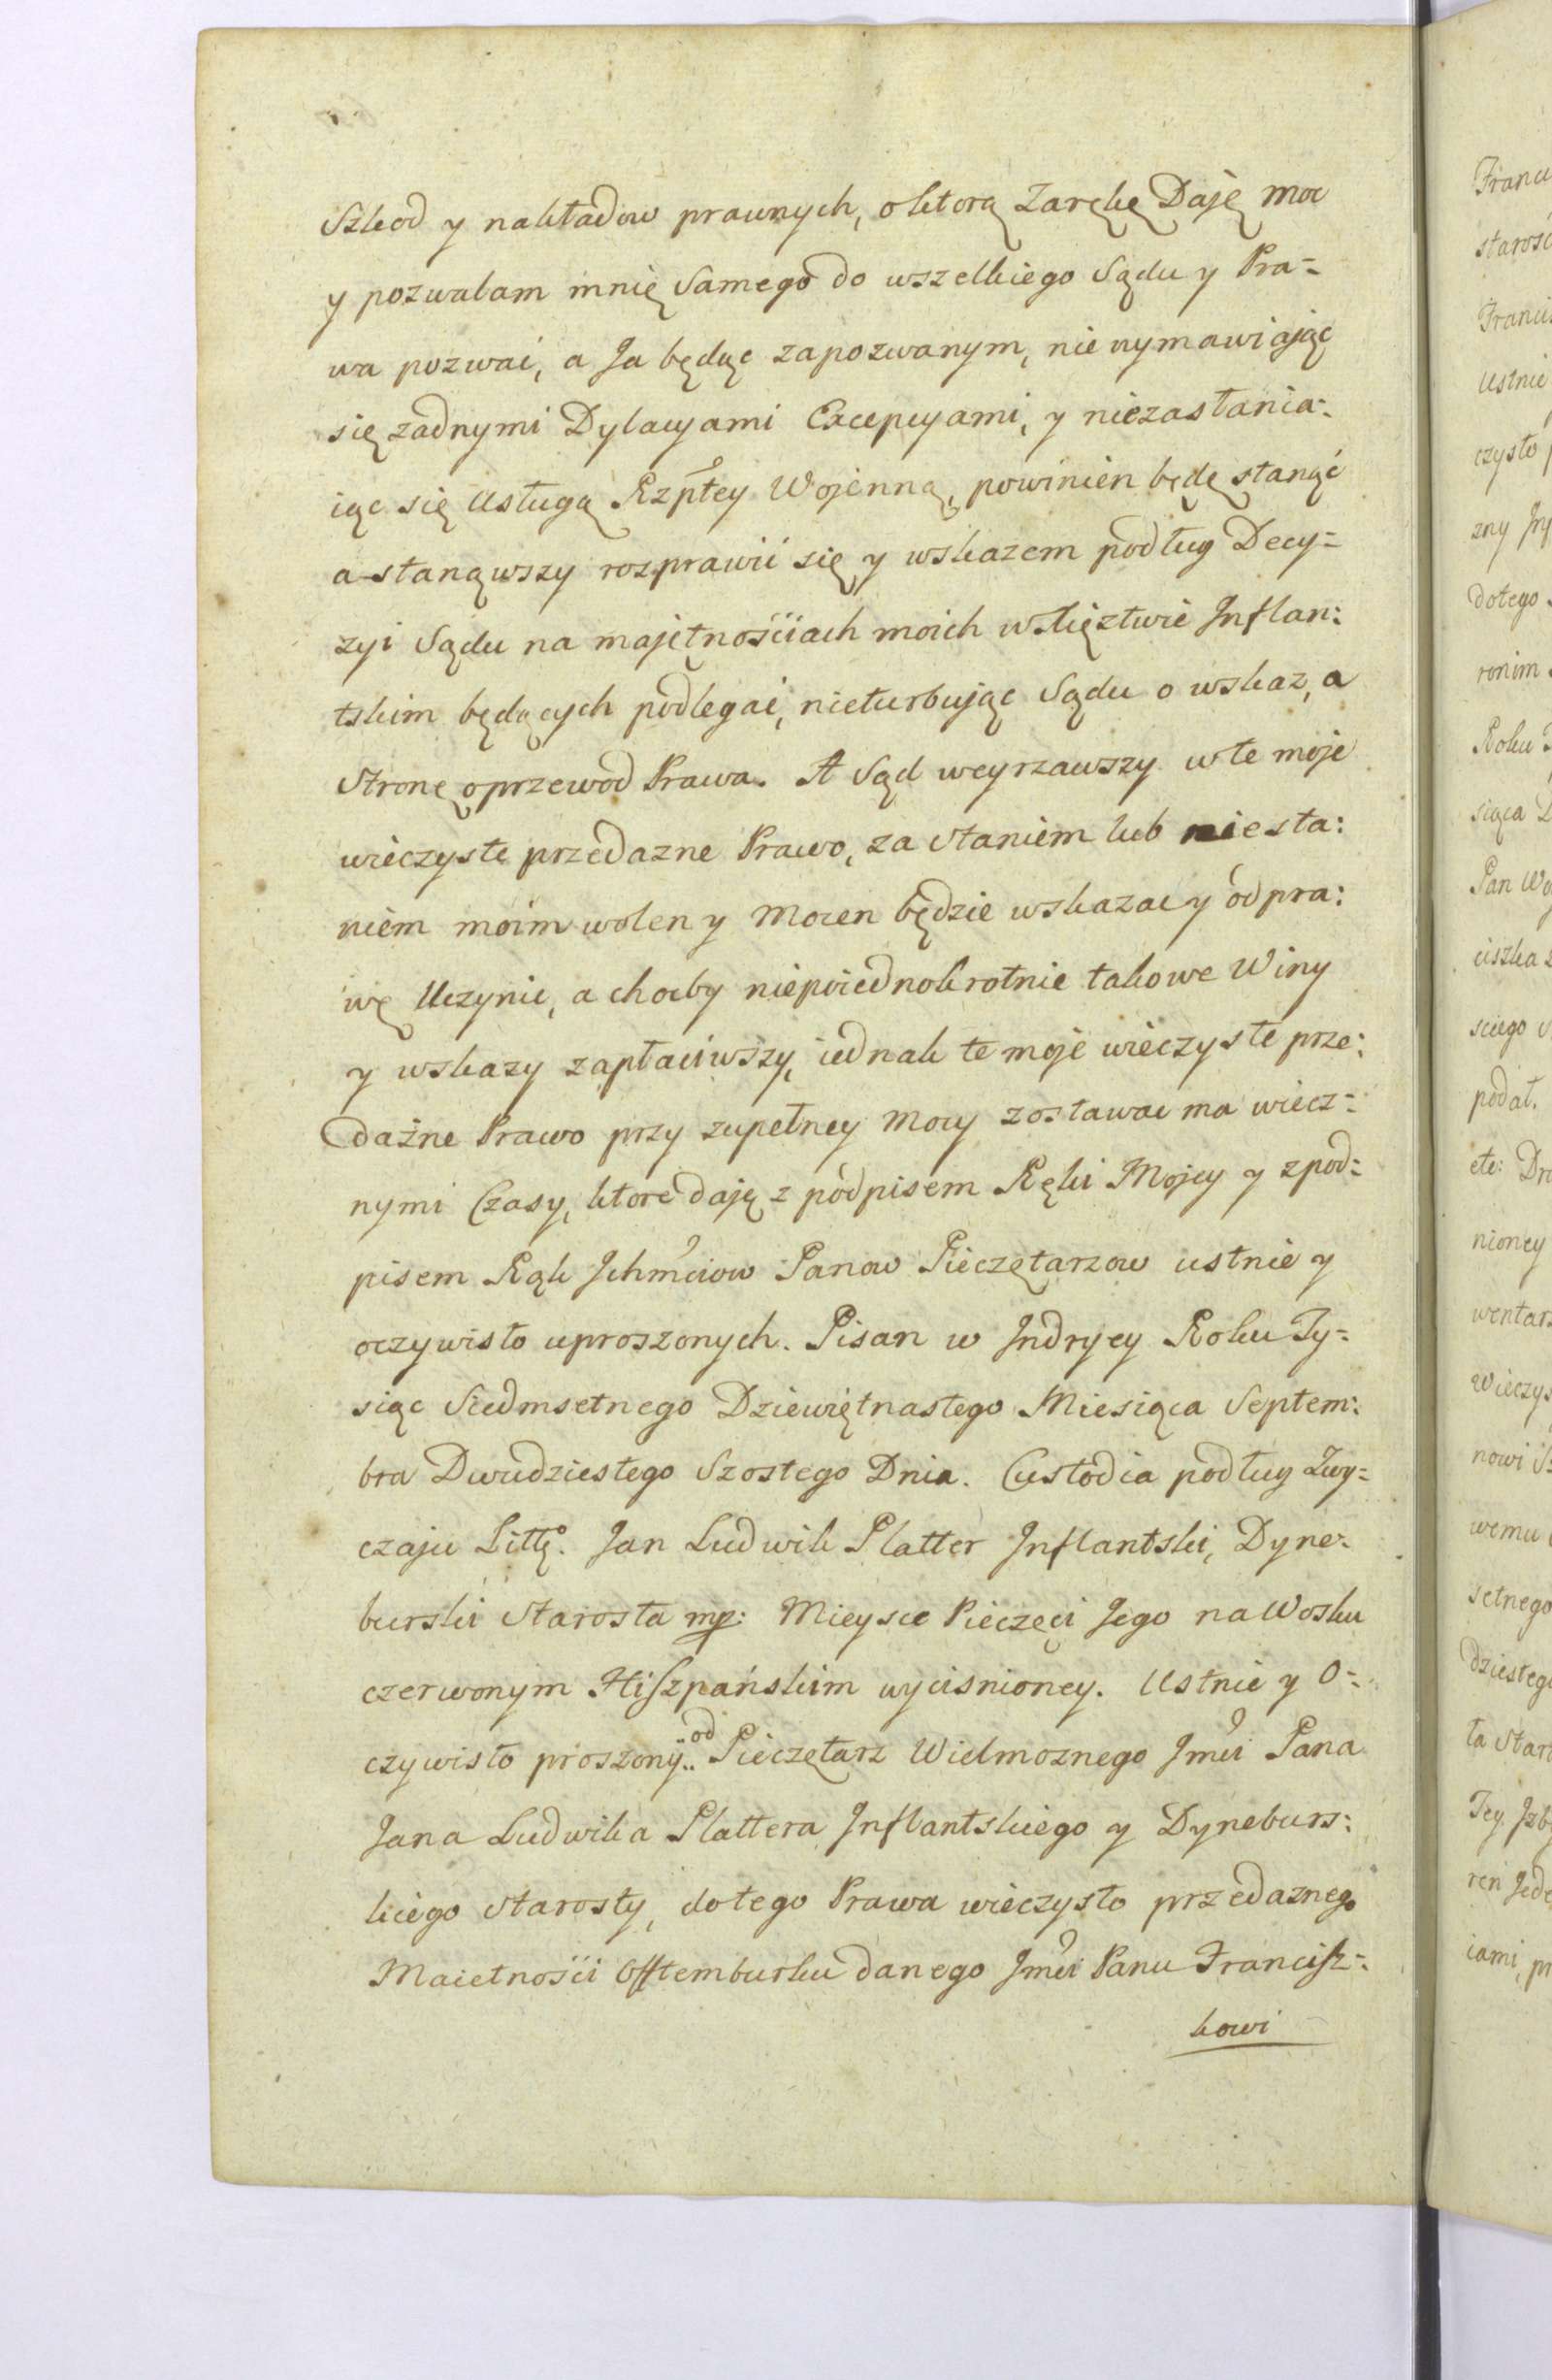 Szkod y nakładow prawnych, o ktorą Zarękę Daję moc
y pozwalam mnię Samego do wszelkiego Sądu y Pra=
wa pozwać, a Ja będąc zapozwanym, nie wymawiając
się żadnymi Dylacyami Excepcyami, y niezasłania:
iąc się Usługą Rzpłtey Wojenną, powinien będę stanąć
a stanąwszy rozprawić się y wskazem podług Decy=
zyi Sądu na majętnościach moich w Xięztwie Inflan:
tskim będących podlegać, nieturbując Sądu o wskaz, a
Stronę o przewod Prawa. A Sąd weyrzawszy w te moje
wieczyste przedazne Prawo, za staniem lub niesta:
niem moim wolen y mocen będzie wskazać y odpra:
wę Uczynić, a choćby niepoiednokrotnie takowe Winy
y wskazy zapłaciwszy, iednak te moje wieczyste prze:
dażne Prawo przy zupełney mocy zostawać ma wiecz=
nymi Czasy, ktore daję z podpisem Ręki Mojey y z pod=
pisem Rąk Ichmciow Panow Pieczętarzow ustnie y
oczywisto uproszonych. Pisan w Indrycy Roku Ty=
siąc Siedmsetnego Dziewiętnastego Miesiąca Septem:
bra Dwudziestego Szostego Dnia. Custodia podług Zwy=
czaju Littę. Jan Ludwik Platter Inflantski, Dyne:
burski Starosta mp: Mieysce Pieczęci Jego na Wosku
czerwonym Hiszpańskim wycisnioney. Ustnie y O=
czywisto proszony od Pieczętarz Wielmoznego Jmci Pana
Jana Ludwika Plattera Inflantskiego y Dyneburs:
kiego Starosty, do tego Prawa wieczysto przedaznego
Maietności Offtemburku danego Jmci Panu Francisz=
kowi